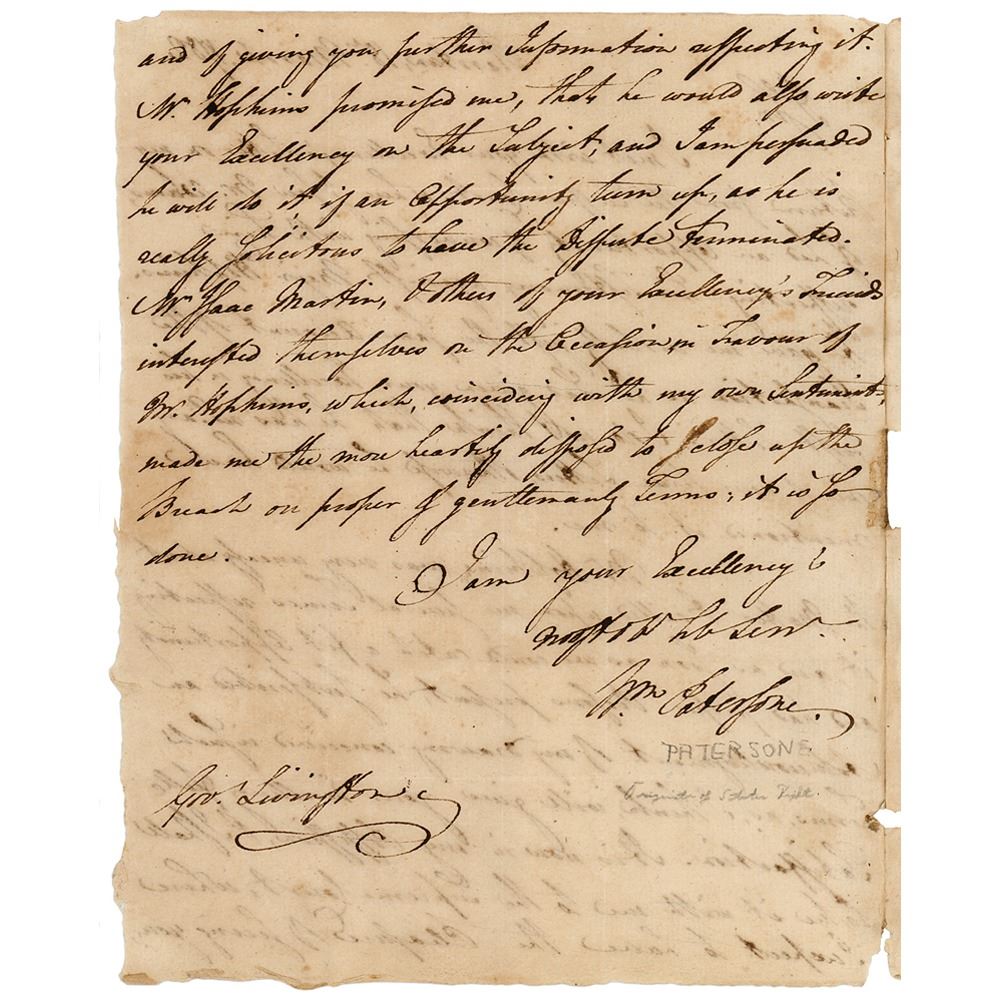 and of giving you further Information respecting it.
Mr. Hopkins promised me, that he would also write
your Excellency on the Subject, and I am persuaded
he will do it, if an Opportunity turn up, as he is
really solicitous to have the Dispute terminated.
Mr. Isaac Martin, & others of your Excellency's Friends
interested themselves on the Occasion, in Favour of
Mr. Hopkins, which, coinciding with my own Sentiments,
made me the more heartily disposed to close up the
Breach on proper & gentlemanly Terms; it is so
done.
I am your Excellency's
most Ob. hb Serv.
Wm. Patersone.
PATERSONE
of States Right.
Gov. Livingstone